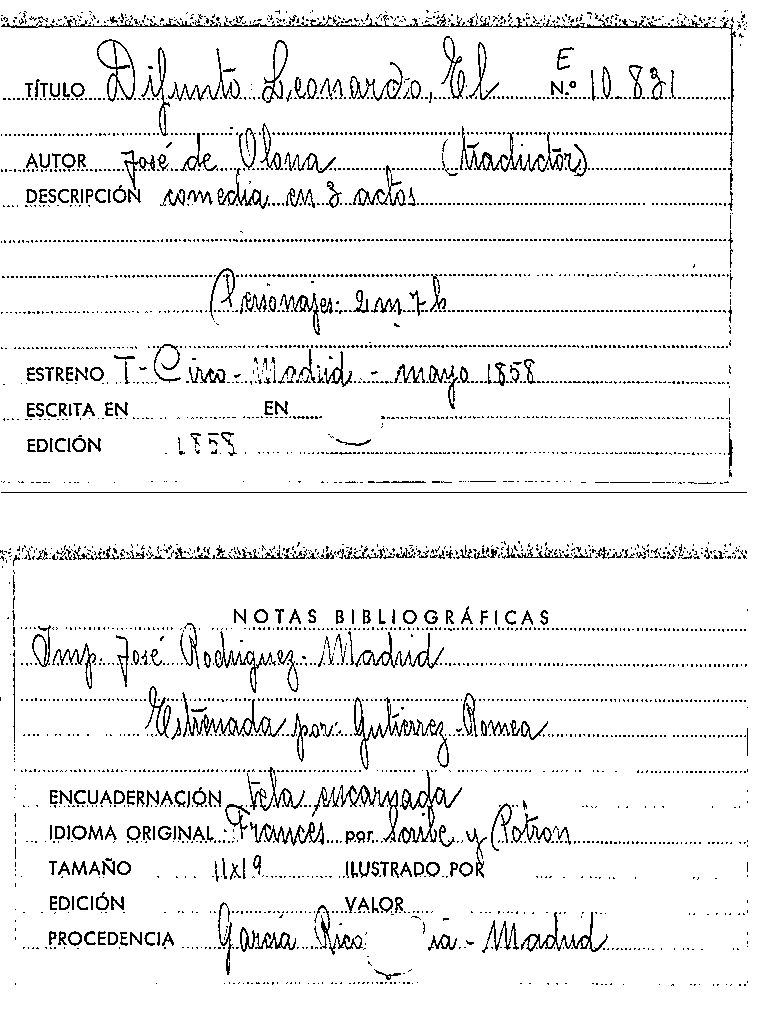 E
TÍTULO Difunto Leonardo, El N.º 10.831
AUTOR José de Olona (traductor)
DESCRIPCIÓN comedia en 3 actos
Personajes: 2 m 7 h
ESTRENO T-Circo-Madrid - mayo 1858
ESCRITA EN EN
EDICIÓN 1858
NOTAS BIBLIOGRÁFICAS
Imp. José Rodriguez - Madrid
Estrenada por: Gutierrez-Romea
ENCUADERNACIÓN tela encarnada
IDIOMA ORIGINAL Francés por Scribe y Potron
TAMAÑO 11x19 ILUSTRADO POR
EDICIÓN VALOR
PROCEDENCIA García Rico - Madrid